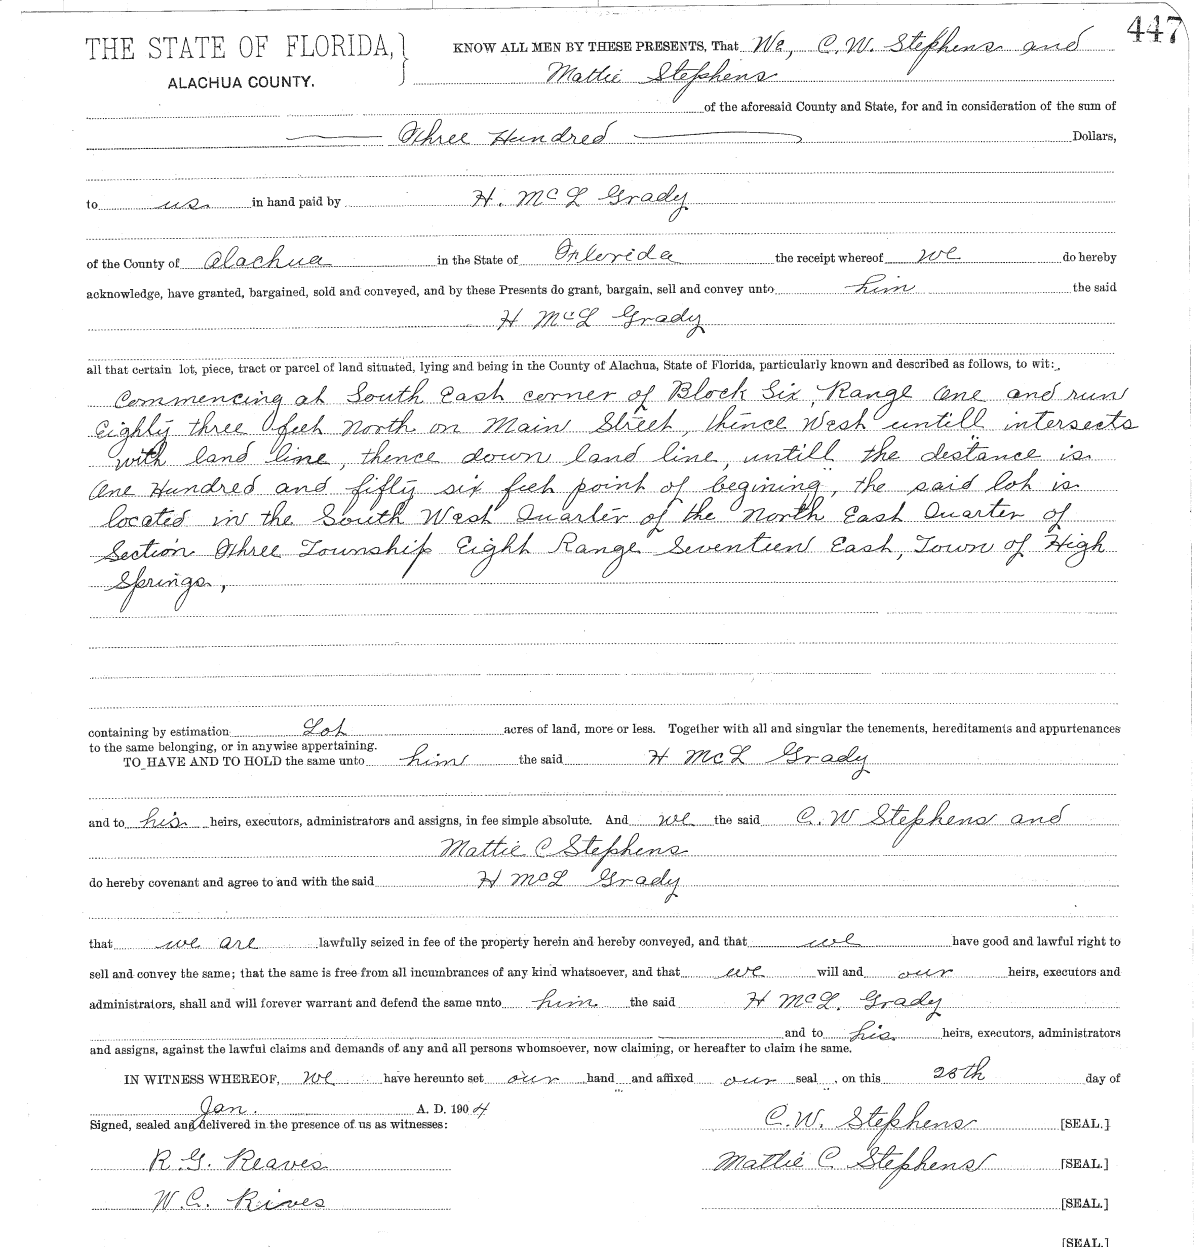 447
THE STATE OF FLORIDA,
ALACHUA COUNTY.
KNOW ALL MEN BY THESE PRESENTS, That We, C. W. Stephens and
Mattie Stephens
of the aforesaid County and State, for and in consideration of the sum of
Three Hundred Dollars,
to us in hand paid by H. McL Grady
of the County of Alachua in the State of Florida the receipt whereof we do hereby
acknowledge, have granted, bargained, sold and conveyed, and by these Presents do grant, bargain, sell and convey unto him the said
H McL Grady
all that certain lot, piece, tract or parcel of land situated, lying and being in the County of Alachua, State of Florida, particularly known and described as follows, to wit:
Commencing at South East corner of Block Six, Range One and run
Eighty three feet North on Main Street, thence West untill intersects
with land line, thence down land line, untill the distance is
One Hundred and fifty six feet point of begining, the said lot is
located in the South West Quarter of the North East Quarter of
Section Three Township Eight Range Seventeen East, Town of High
Springs,
containing by estimation Lot acres of land, more or less. Together with all and singular the tenements, hereditaments and appurtenances
to the same belonging, or in anywise appertaining.
TO HAVE AND TO HOLD the same unto him the said H McL Grady
and to his heirs, executors, administrators and assigns, in fee simple absolute. And we the said C. W Stephens and
Mattie C Stephens
do hereby covenant and agree to and with the said H McL Grady
that we are lawfully seized in fee of the property herein and hereby conveyed, and that we have good and lawful right to
sell and convey the same; that the same is free from all incumbrances of any kind whatsoever, and that we will and our heirs, executors and
administrators, shall and will forever warrant and defend the same unto him the said H McL. Grady
and to his heirs, executors, administrators
and assigns, against the lawful claims and demands of any and all persons whomsoever, now claiming, or hereafter to claim the same.
IN WITNESS WHEREOF, we have hereunto set our hand and affixed our seal , on this day of
Jan. A. D. 1904
Signed, sealed and delivered in the presence of us as witnesses:
C. W. Stephens [SEAL.]
R. G. Reaves Mattie C Stephens [SEAL.]
W. C. Rives [SEAL.]
[SEAL.]